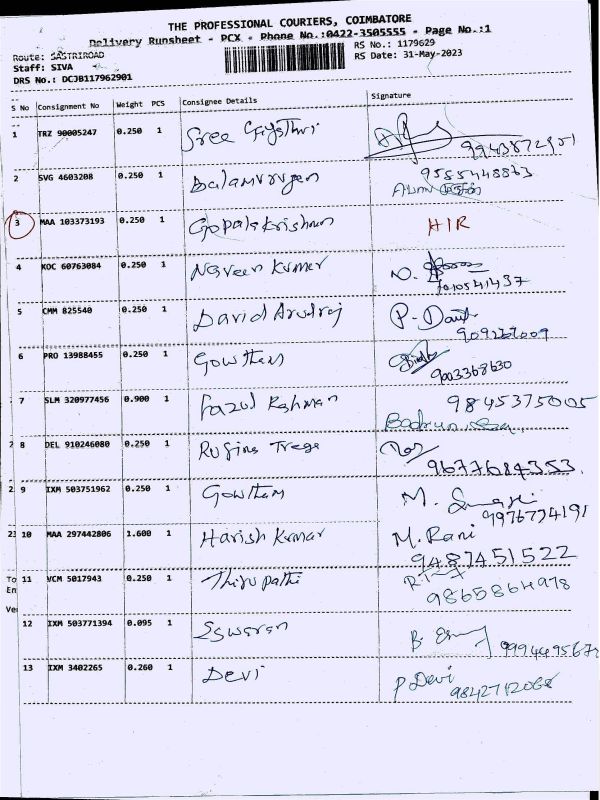 THE PROFESSIONAL COURIERS, COIMBATORE
Delivery Runsheet - PCX - Phone No.:0422-3505555 - Page No.:1
Route: SASTRIROAD RS No.: 1179629
Staff: SIVA RS Date: 31-May-2023
DRS No.: DCJB117962901
S No Consignment No Weight PCS Consignee Details Signature
1 TRZ 90005247 0.250 1 Sree
2 SVG 4603208 0.250 1 Balamurugan 9555448863
3 MAA 103373193 0.250 1 Gopalakrishnan HIR
4 KOC 60763084 0.250 1 Naveen Kumar N.
7010541437
5 CMM 825540 0.250 1 David Arudraj P. David
6 PRO 13988455 0.250 1 Gowtham
9003368630
7 SLM 320977456 0.900 1 Fazul Rahman 9845375005
2 8 DEL 910246080 0.250 1 Rufina
9677684353.
2 9 IXM 503751962 0.250 1 Gowtham M.
9976774191
23 10 MAA 297442806 1.600 1 Harish Kumar M. Rani
9487451522
To 11 VCM 5017943 0.250 1 Thirupathi
En 9865864978
Ve
12 IXM 503771394 0.095 1 Eswaran B.
13 IXM 3402265 0.260 1 Devi P Devi
9842712068